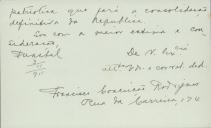 patriotica que fará a consolidação
definitiva da Republica.
Sou com a maior estima e con
sideração,
Funchal
De V. Ex.cia
att.º ven.or e
Francisco Rodrigues
Rua da Carreira, 174